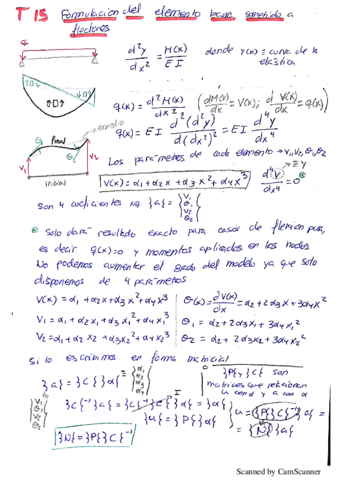 T 15 Formulación del elemento barra sometido a
flectores
d²y/dx² = M(x)/EI donde y(x) ≡ curva de la
elástica
q(x) = d²M(x)/dx² (dM(x)/dx = V(x); dV(x)/dx = q(x))
q(x) = EI d²(d²y)/d(dx²)² = EI d⁴y/dx⁴
Los parámetros de cada elemento → v₁, v₂, θ₁, θ₂
inicial
V(x) = α₁ + α₂x + α₃x² + α₄x³ d⁴y/dx⁴ = 0
son 4 coeficientes xq {a} = {v₁ θ₁ v₂ θ₂}
Solo dará resultado exacto para casos de flexión pura,
es decir q(x)=0 y momentos aplicados en los nodos.
No podemos aumentar el grado del modelo ya que solo
disponemos de 4 parámetros
V(x) = α₁ + α₂x + α₃x² + α₄x³ θ(x) = ∂V(x)/∂x = α₂ + 2α₃x + 3α₄x²
V₁ = α₁ + α₂x₁ + α₃x₁² + α₄x₁³ θ₁ = α₂ + 2α₃x₁ + 3α₄x₁²
V₂ = α₁ + α₂x₂ + α₃x₂² + α₄x₂³ θ₂ = α₂ + 2α₃x₂ + 3α₄x₂²
Si lo escribimos en forma matricial
}P{ y }C{ son
matrices que relacionan
u con α y a con α
}a{ = }C{ }α{ = {α₁ α₂ α₃ α₄}
{v₁ θ₁ v₂ θ₂} }C{⁻¹ }a{ = }C{⁻¹ }C{ }α{ = }α{
}u{ = }P{ }α{ u = }P{ }C{⁻¹ }a{ =
= }N{ }a{
}N{ = }P{ }C{⁻¹
Scanned by CamScanner